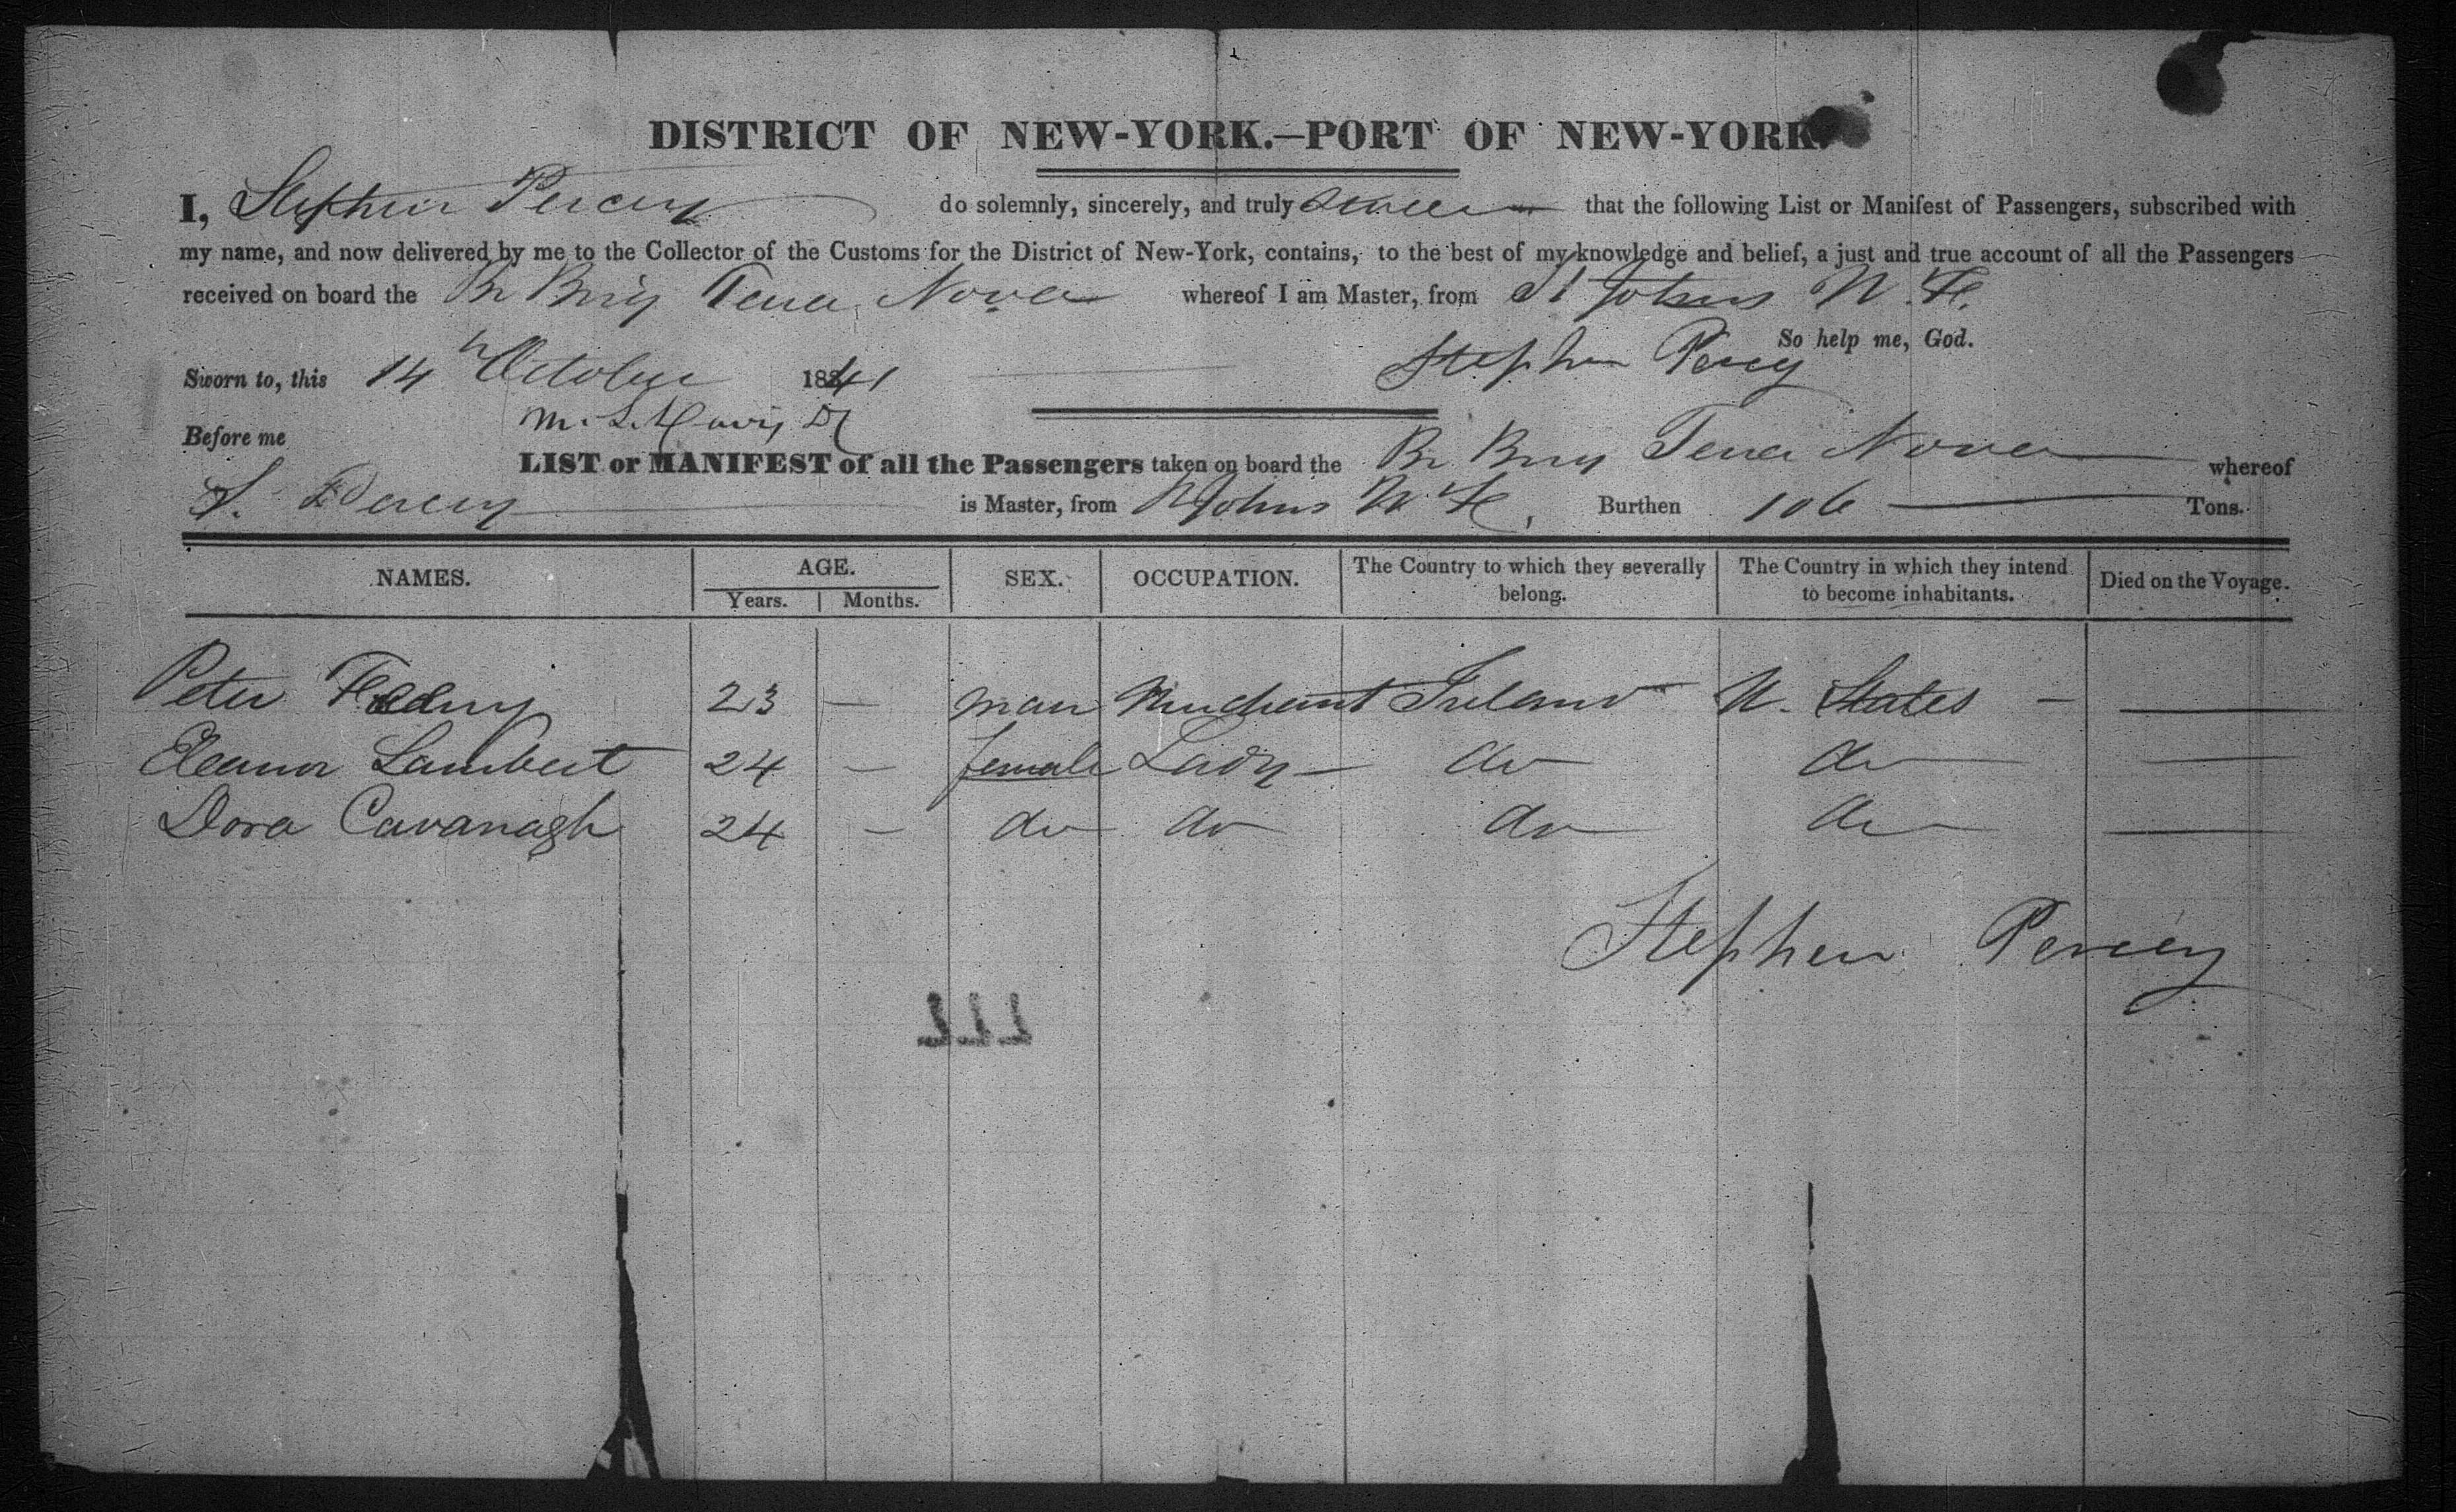 DISTRICT OF NEW-YORK.—PORT OF NEW-YORK.
I, Stephen Percey do solemnly, sincerely, and truly swear that the following List or Manifest of Passengers, subscribed with
my name, and now delivered by me to the Collector of the Customs for the District of New-York, contains, to the best of my knowledge and belief, a just and true account of all the Passengers
received on board the Br Brig Terra Nova whereof I am Master, from St Johns N. F.
So help me, God.
Sworn to, this 14th October 1841 Stephen Percey
Before me
LIST or MANIFEST of all the Passengers taken on board the Br Brig Terra Nova whereof
S. Percey is Master, from St Johns N. F, Burthen 106 Tons.
NAMES. AGE. SEX. OCCUPATION. The Country to which they severally belong. The Country in which they intend to become inhabitants. Died on the Voyage.
Years. Months.
Peter 23 — man Merchant Ireland U. States — —
Eleanor Lambert 24 — female Lady — do do —
Dora Cavanagh 24 — do do do do —
Stephen Percey